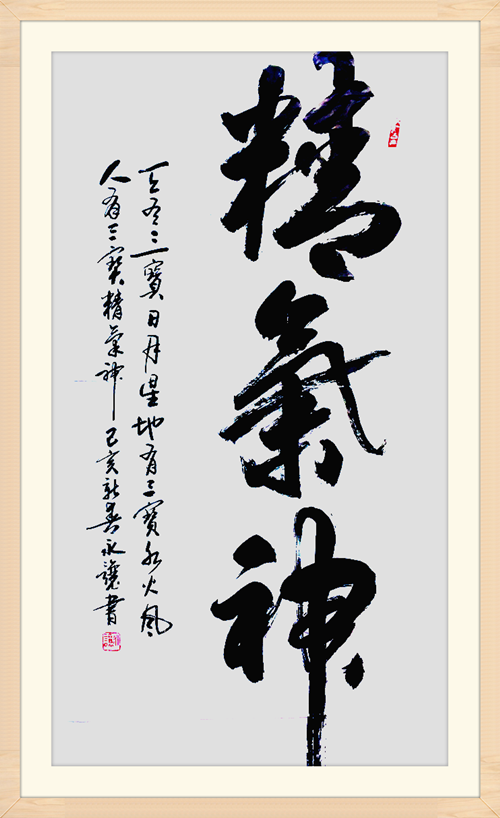 精氣神
天有三寳日月星地有三寶水火風
人有三寳精氣神己亥新春永讓書